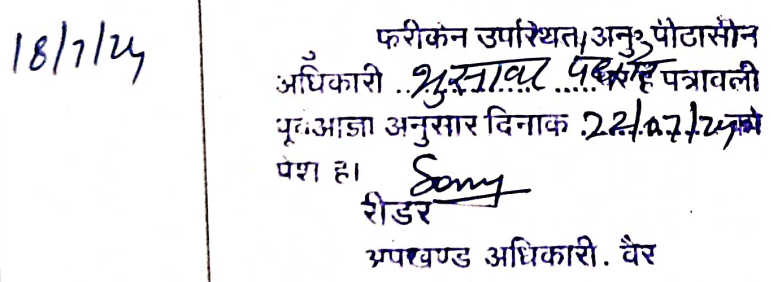 18/7/24
फरीकेन उपस्थित, अनु॰ पीठासीन
अधिकारी .. भुसावर .... पर है पत्रावली
पूर्व आज्ञा अनुसार दिनांक 22/07/24 को
पेश हो।
रीडर
उपखण्ड अधिकारी. वैर